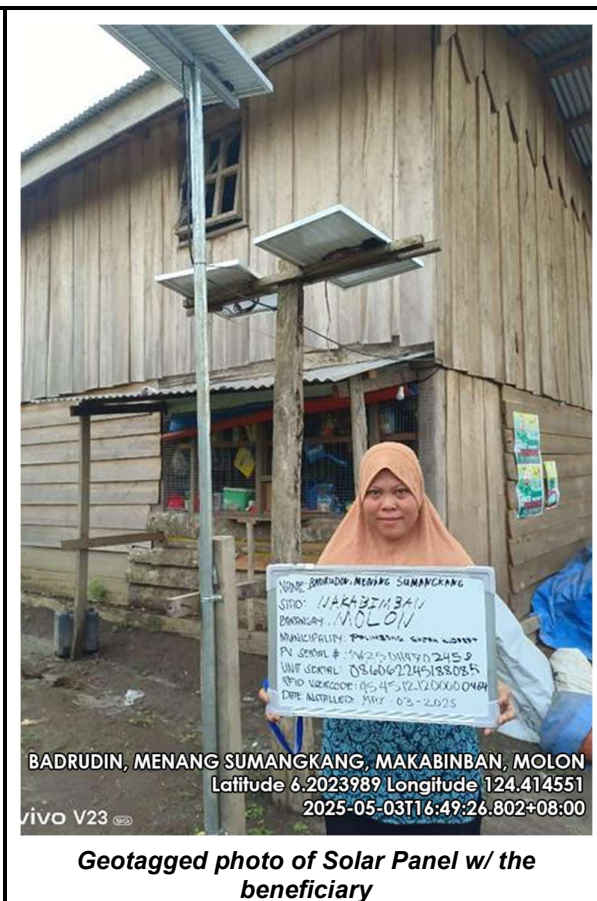 NAME: BADRUDIN, MENANG SUMANGKANG
SITIO: NAKABIMBAN
BARANGAY: MOLON
MUNICIPALITY: PALIMBANG
PV SERIAL #:
UNIT SERIAL: 086062245188085
RFID USERCODE:
DATE INSTALLED: MAY-03-2025
BADRUDIN, MENANG SUMANGKANG, MAKABINBAN, MOLON
Latitude 6.2023989 Longitude 124.414551
2025-05-03T16:49:26.802+08:00
vivo V23 5G
Geotagged photo of Solar Panel w/ the
beneficiary